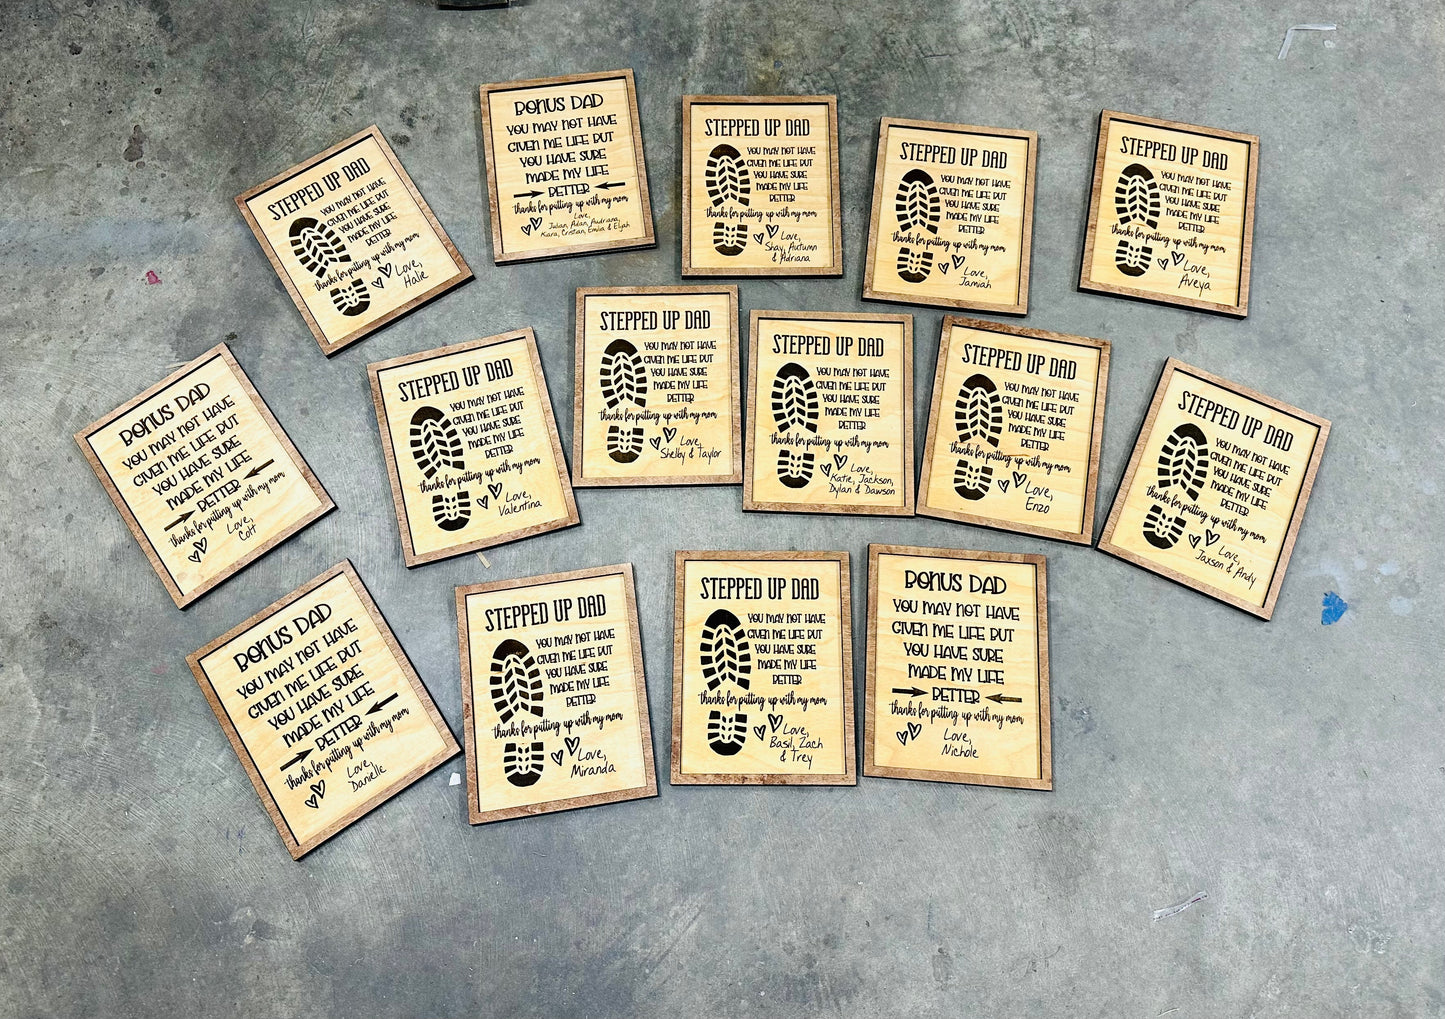 STEPPED UP DAD
YOU MAY NOT HAVE
GIVEN ME LIFE BUT
YOU HAVE SURE
MADE MY LIFE
BETTER
thanks for putting up with my mom
Love,
Halie
BONUS DAD
YOU MAY NOT HAVE
GIVEN ME LIFE BUT
YOU HAVE SURE
MADE MY LIFE
BETTER
thanks for putting up with my mom
Love,
Julian, Adan, Audriana,
Kiara, Cristian, Emilia & Elijah
STEPPED UP DAD
YOU MAY NOT HAVE
GIVEN ME LIFE BUT
YOU HAVE SURE
MADE MY LIFE
BETTER
thanks for putting up with my mom
Love,
Shay, Autumn
& Adriana
STEPPED UP DAD
YOU MAY NOT HAVE
GIVEN ME LIFE BUT
YOU HAVE SURE
MADE MY LIFE
BETTER
thanks for putting up with my mom
Love,
Jamiah
STEPPED UP DAD
YOU MAY NOT HAVE
GIVEN ME LIFE BUT
YOU HAVE SURE
MADE MY LIFE
BETTER
thanks for putting up with my mom
Love,
Aveya
BONUS DAD
YOU MAY NOT HAVE
GIVEN ME LIFE BUT
YOU HAVE SURE
MADE MY LIFE
BETTER
thanks for putting up with my mom
Love,
Colt
STEPPED UP DAD
YOU MAY NOT HAVE
GIVEN ME LIFE BUT
YOU HAVE SURE
MADE MY LIFE
BETTER
thanks for putting up with my mom
Love,
Valentina
STEPPED UP DAD
YOU MAY NOT HAVE
GIVEN ME LIFE BUT
YOU HAVE SURE
MADE MY LIFE
BETTER
thanks for putting up with my mom
Love,
Shelby & Taylor
STEPPED UP DAD
YOU MAY NOT HAVE
GIVEN ME LIFE BUT
YOU HAVE SURE
MADE MY LIFE
BETTER
thanks for putting up with my mom
Love,
Katie, Jackson,
Dylan & Dawson
STEPPED UP DAD
YOU MAY NOT HAVE
GIVEN ME LIFE BUT
YOU HAVE SURE
MADE MY LIFE
BETTER
thanks for putting up with my mom
Love,
Enzo
STEPPED UP DAD
YOU MAY NOT HAVE
GIVEN ME LIFE BUT
YOU HAVE SURE
MADE MY LIFE
BETTER
thanks for putting up with my mom
Love,
Jaxson & Andy
BONUS DAD
YOU MAY NOT HAVE
GIVEN ME LIFE BUT
YOU HAVE SURE
MADE MY LIFE
BETTER
thanks for putting up with my mom
Love,
Danielle
STEPPED UP DAD
YOU MAY NOT HAVE
GIVEN ME LIFE BUT
YOU HAVE SURE
MADE MY LIFE
BETTER
thanks for putting up with my mom
Love,
Miranda
STEPPED UP DAD
YOU MAY NOT HAVE
GIVEN ME LIFE BUT
YOU HAVE SURE
MADE MY LIFE
BETTER
thanks for putting up with my mom
Love,
Basil, Zach
& Trey
BONUS DAD
YOU MAY NOT HAVE
GIVEN ME LIFE BUT
YOU HAVE SURE
MADE MY LIFE
BETTER
thanks for putting up with my mom
Love,
Nichole